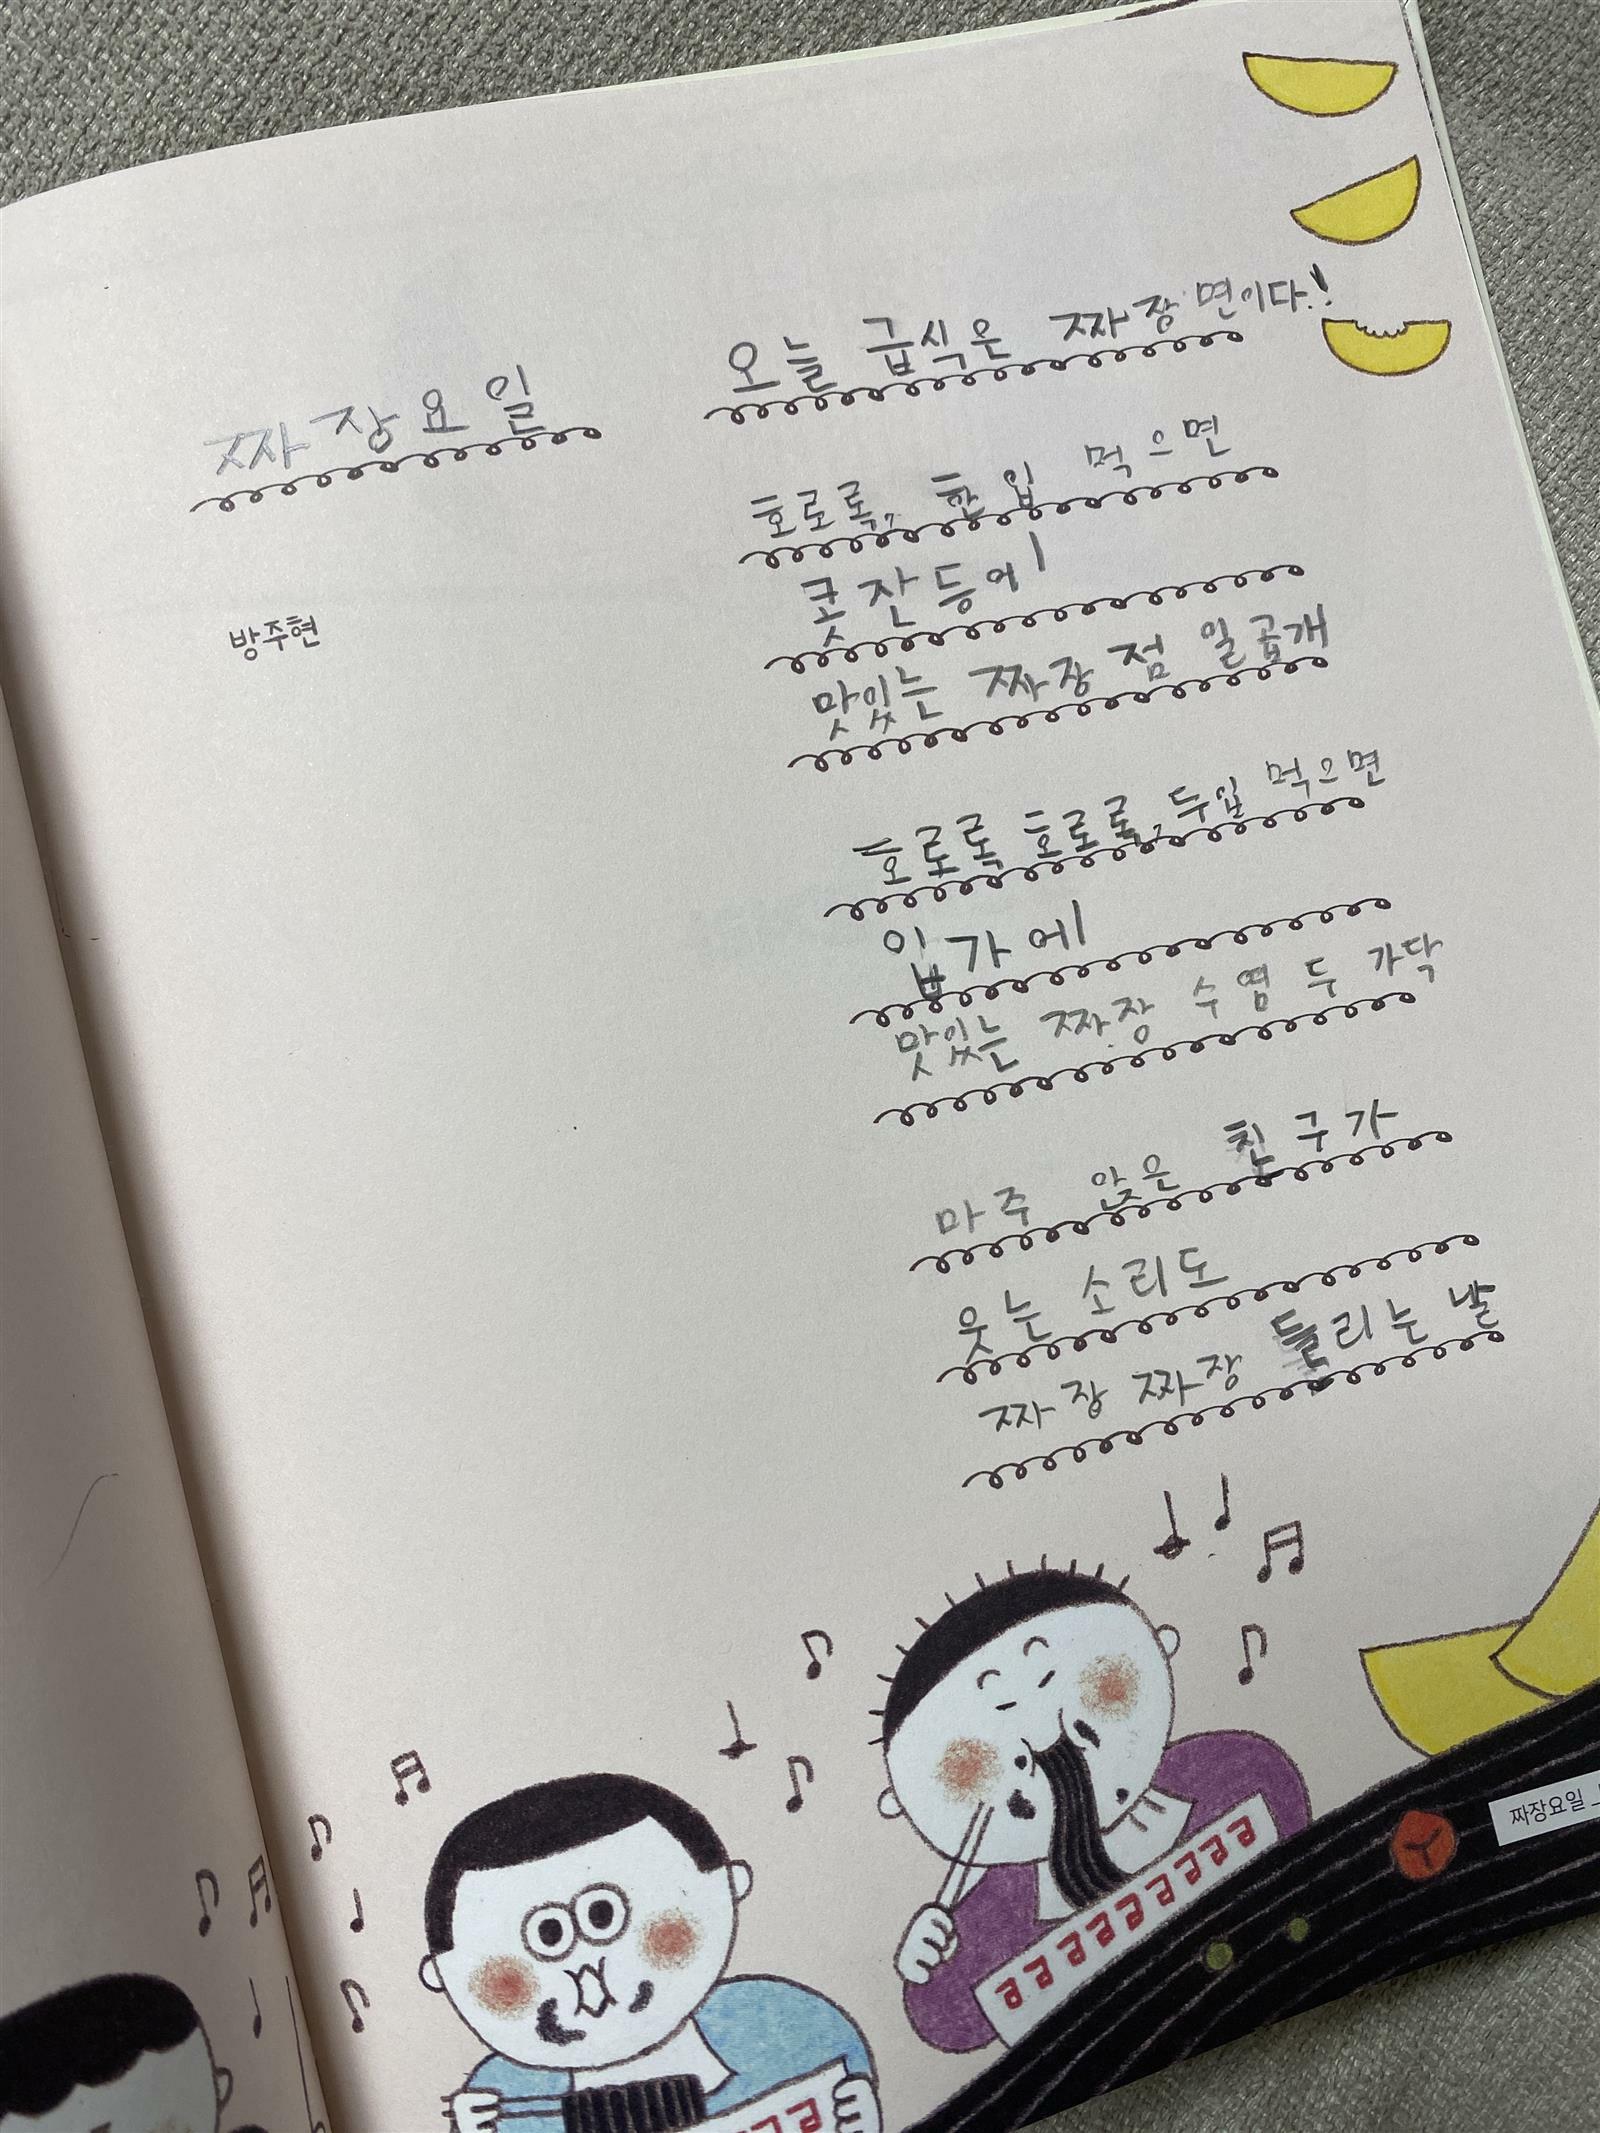 짜장요일
방주현
오늘 급식은 짜장면이다!
호로록, 한입 먹으면
콧잔등에
맛있는 짜장 점 일곱개
호로록 호로록, 두입 먹으면
입가에
맛있는 짜장 수염 두 가닥
마주 앉은 친구가
웃는 소리도
짜장 짜장 들리는 날
짜장요일